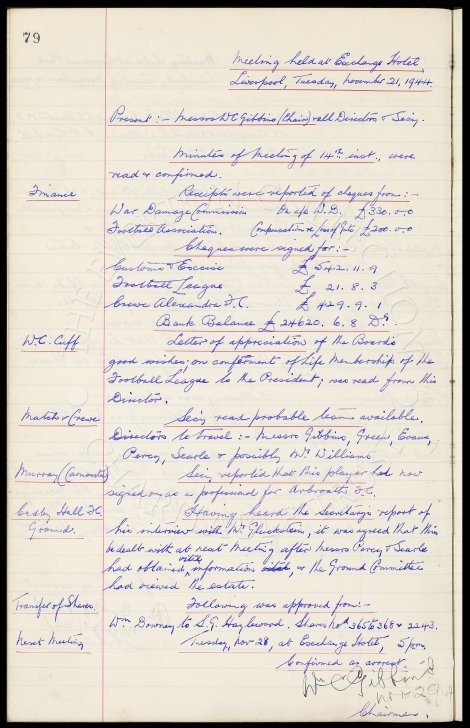 79
Meeting held at Exchange Hotel
Liverpool, Tuesday, November 21, 1944.
Present :- Messrs WC Gibbins (Chair) & all Directors & Secy.
Minutes of Meeting of 14th inst., were
read & confirmed.
Finance
Receipts were reported of cheques from :-
War Damage Commission On a/c W.D. £330.0.0
Football Association. Compensation re Loss of Gate £200.0.0
Cheques were signed for :-
Customs & Excise £542.11.9
Football League £ 21.8.3
Crewe Alexandra F.C. £ 429.9.1
Bank Balance £24620.6.8 Dr.
W.C. Cuff
Letter of appreciation of the Board's
good wishes, on conferment of Life Membership of the
Football League to the President, was read from this
Director.
Match v Crewe
Secy read probable team available.
Directors to travel :- Messrs Gibbins, Green, Evans,
Percy, Searle & possibly Mr Williams
Murray (Carnoustie)
Secy reported that this player had now
signed on as a professional for Arbroath F.C.
Hall F.C.
Ground.
Having heard the Secretary's report of
his interview with Mr Gluckstein, it was agreed that this
be dealt with at next Meeting after Messrs Percy & Searle
had obtained information, or the Ground Committee
had viewed the estate.
Transfer of Shares.
Following was approved from :-
Wm Downey to S.G. Haylewood. Shares Nos 3656 368 & 2243.
Next Meeting
Tuesday, Nov 28, at Exchange Hotel, 5 pm.
Confirmed as correct
Wm C Gibbins
Nov 29
Chairman.